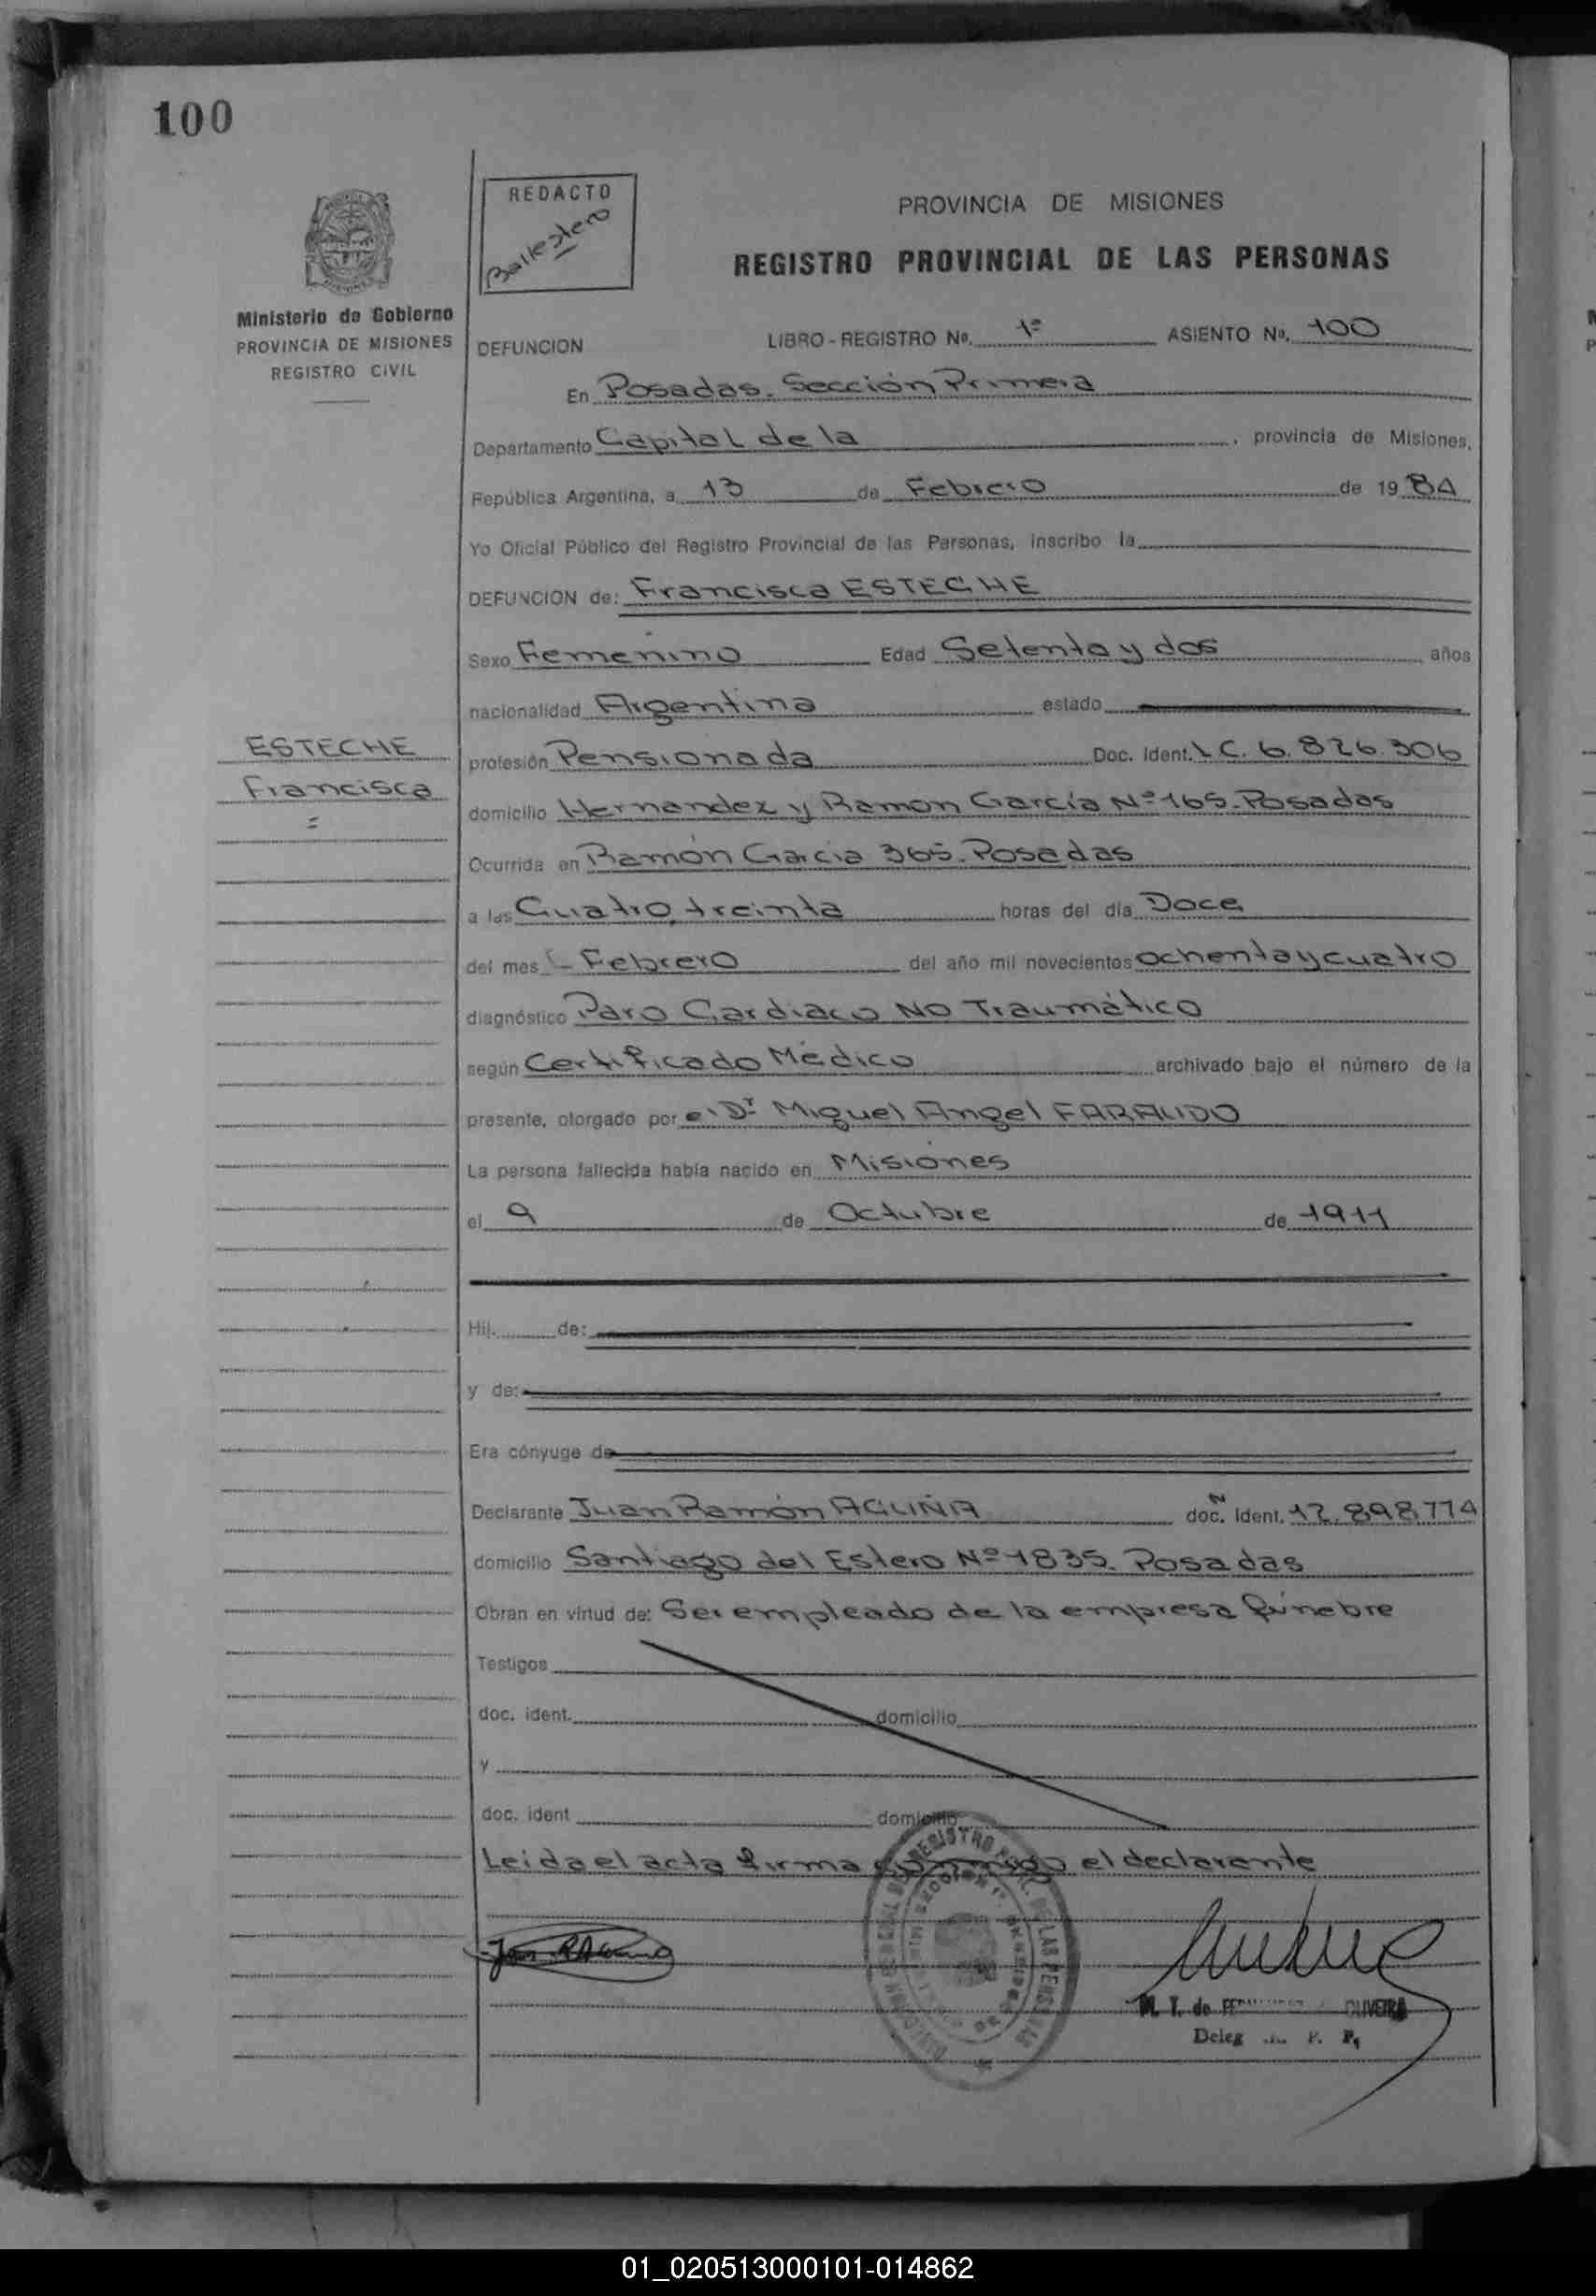 100
REDACTO
Ballestero
PROVINCIA DE MISIONES
REGISTRO PROVINCIAL DE LAS PERSONAS
Ministerio de Gobierno
PROVINCIA DE MISIONES
REGISTRO CIVIL
DEFUNCION LIBRO - REGISTRO No. 1º ASIENTO No. 100
En Posadas. Sección Primera
Departamento Capital de la , provincia de Misiones,
República Argentina, a 13 de Febrero de 19 84
Yo Oficial Público del Registro Provincial de las Personas, inscribo la
DEFUNCION de: Francisca ESTECHE
Sexo Femenino Edad Setenta y dos años
nacionalidad Argentina estado
ESTECHE
Francisca
profesión Pensionada Doc. Ident. L.C. 6.826.306
domicilio Hernandez y Ramon García Nº 165. Posadas
Ocurrida en Ramón Garcia 365. Posadas
a las Cuatro, treinta horas del día Doce
del mes Febrero del año mil novecientos ochenta y cuatro
diagnóstico Paro Cardiaco NO Traumático
según Certificado Médico archivado bajo el número de la
presente, otorgado por el Dr Miguel Angel FARAUDO
La persona fallecida había nacido en Misiones
el 9 de Octubre de 1911
Hij. de:
y de:
Era cónyuge de
Declarante Juan Ramón ACUÑA doc. N Ident. 12.898774
domicilio Santiago del Estero Nº 1835. Posadas
Obran en virtud de: Ser empleado de la empresa fúnebre
Testigos
doc. ident. domicilio
y
doc. ident domicilio
Leida el acta firma conmigo el declarante
M. T. de OLIVEIRA
Deleg R. P. P.
01_020513000101-014862